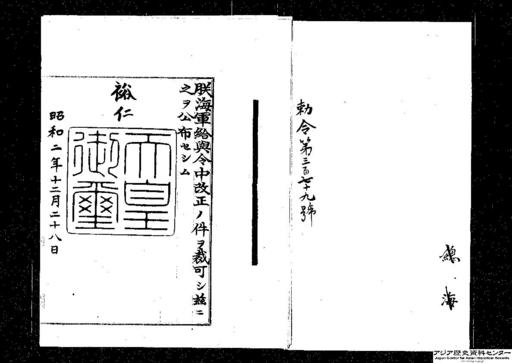 勅令第三百七十九號
總海
朕海軍給與令中改正ノ件ヲ裁可シ玆ニ
之ヲ公布セシム
裕仁
天皇御璽
昭和二年十二月二十八日
アジア歴史資料センター
Japan Center for Asian Historical Records